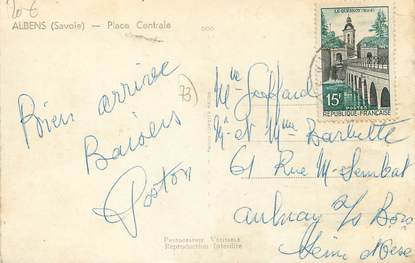 20 €
ALBENS (Savoie) — Place Centrale
Bien arrivée
Baisers
73
LE QUESNOY (Nord)
15F
POSTES
REPUBLIQUE FRANÇAISE
Mr et Mme Barbette
61 Rue M. Sembat
Aulnay s/s Bois
Seine et Oise
PHOTOGRAPHIE VÉRITABLE
Reproduction Interdite